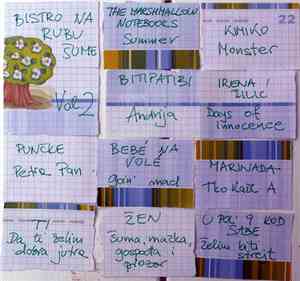 BISTRO NA
RUBU
ŠUME
Vol 2
THE MARSHMALLOW
NOTEBOOKS
Summer
22
KIMIKO
Monster
BITIPATIBI
Andrija
IRENA
ŽILIĆ
Days of
innocence
PUNČKE
Petra Pan
BEBÉ NA
VOLÉ
goin' mad
MARINADA-
Tko kaže A
TI
Da ti želim
dobra jutra
ŽEN
Šuma, mačka,
gospođa i
prozor
U POL' 9 KOD
SABE
Želim biti
strejt